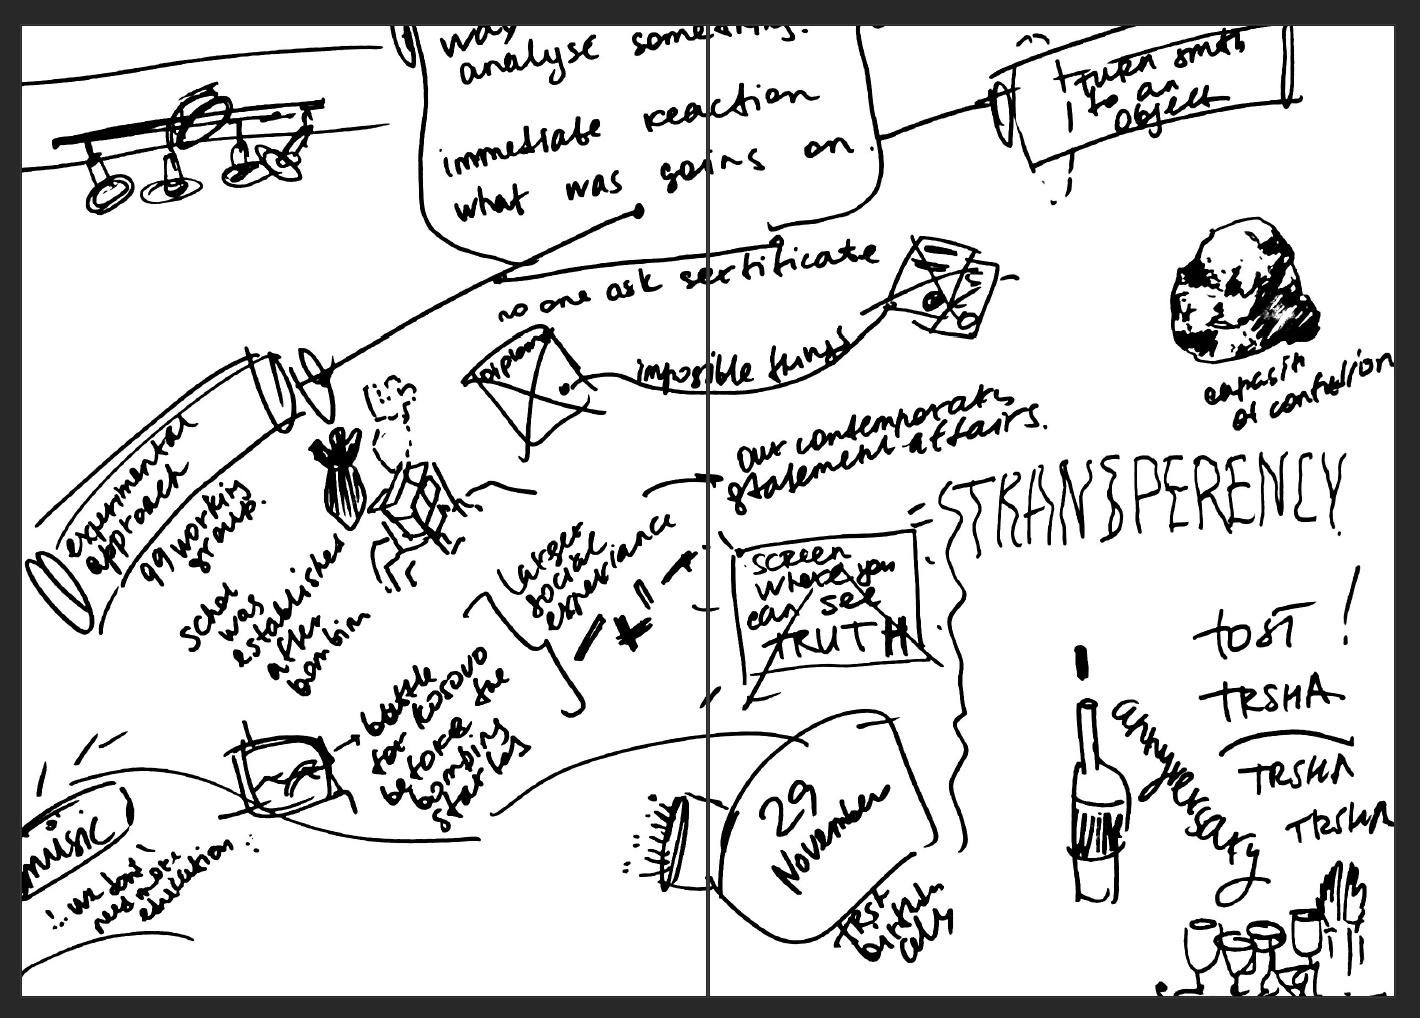 way
analyse something.
immediate reaction
what was going on.
turn smth
to an
object
no one ask sertificate
diplom
impossible things
capasity
of confusion
our contemporary
statement affairs.
TRANSPERENCY
experimental
approach
99 working
group.
school
was
established
after
bombin
larger
social
experiance
SCREEN
where you
can see
TRUTH
TOST !
TRSHA
TRSHA
TRSHA
annyversary
battle
for Kosovo
before the
bombing
started
music
!.. we don't
need more
education
29
November
birthday